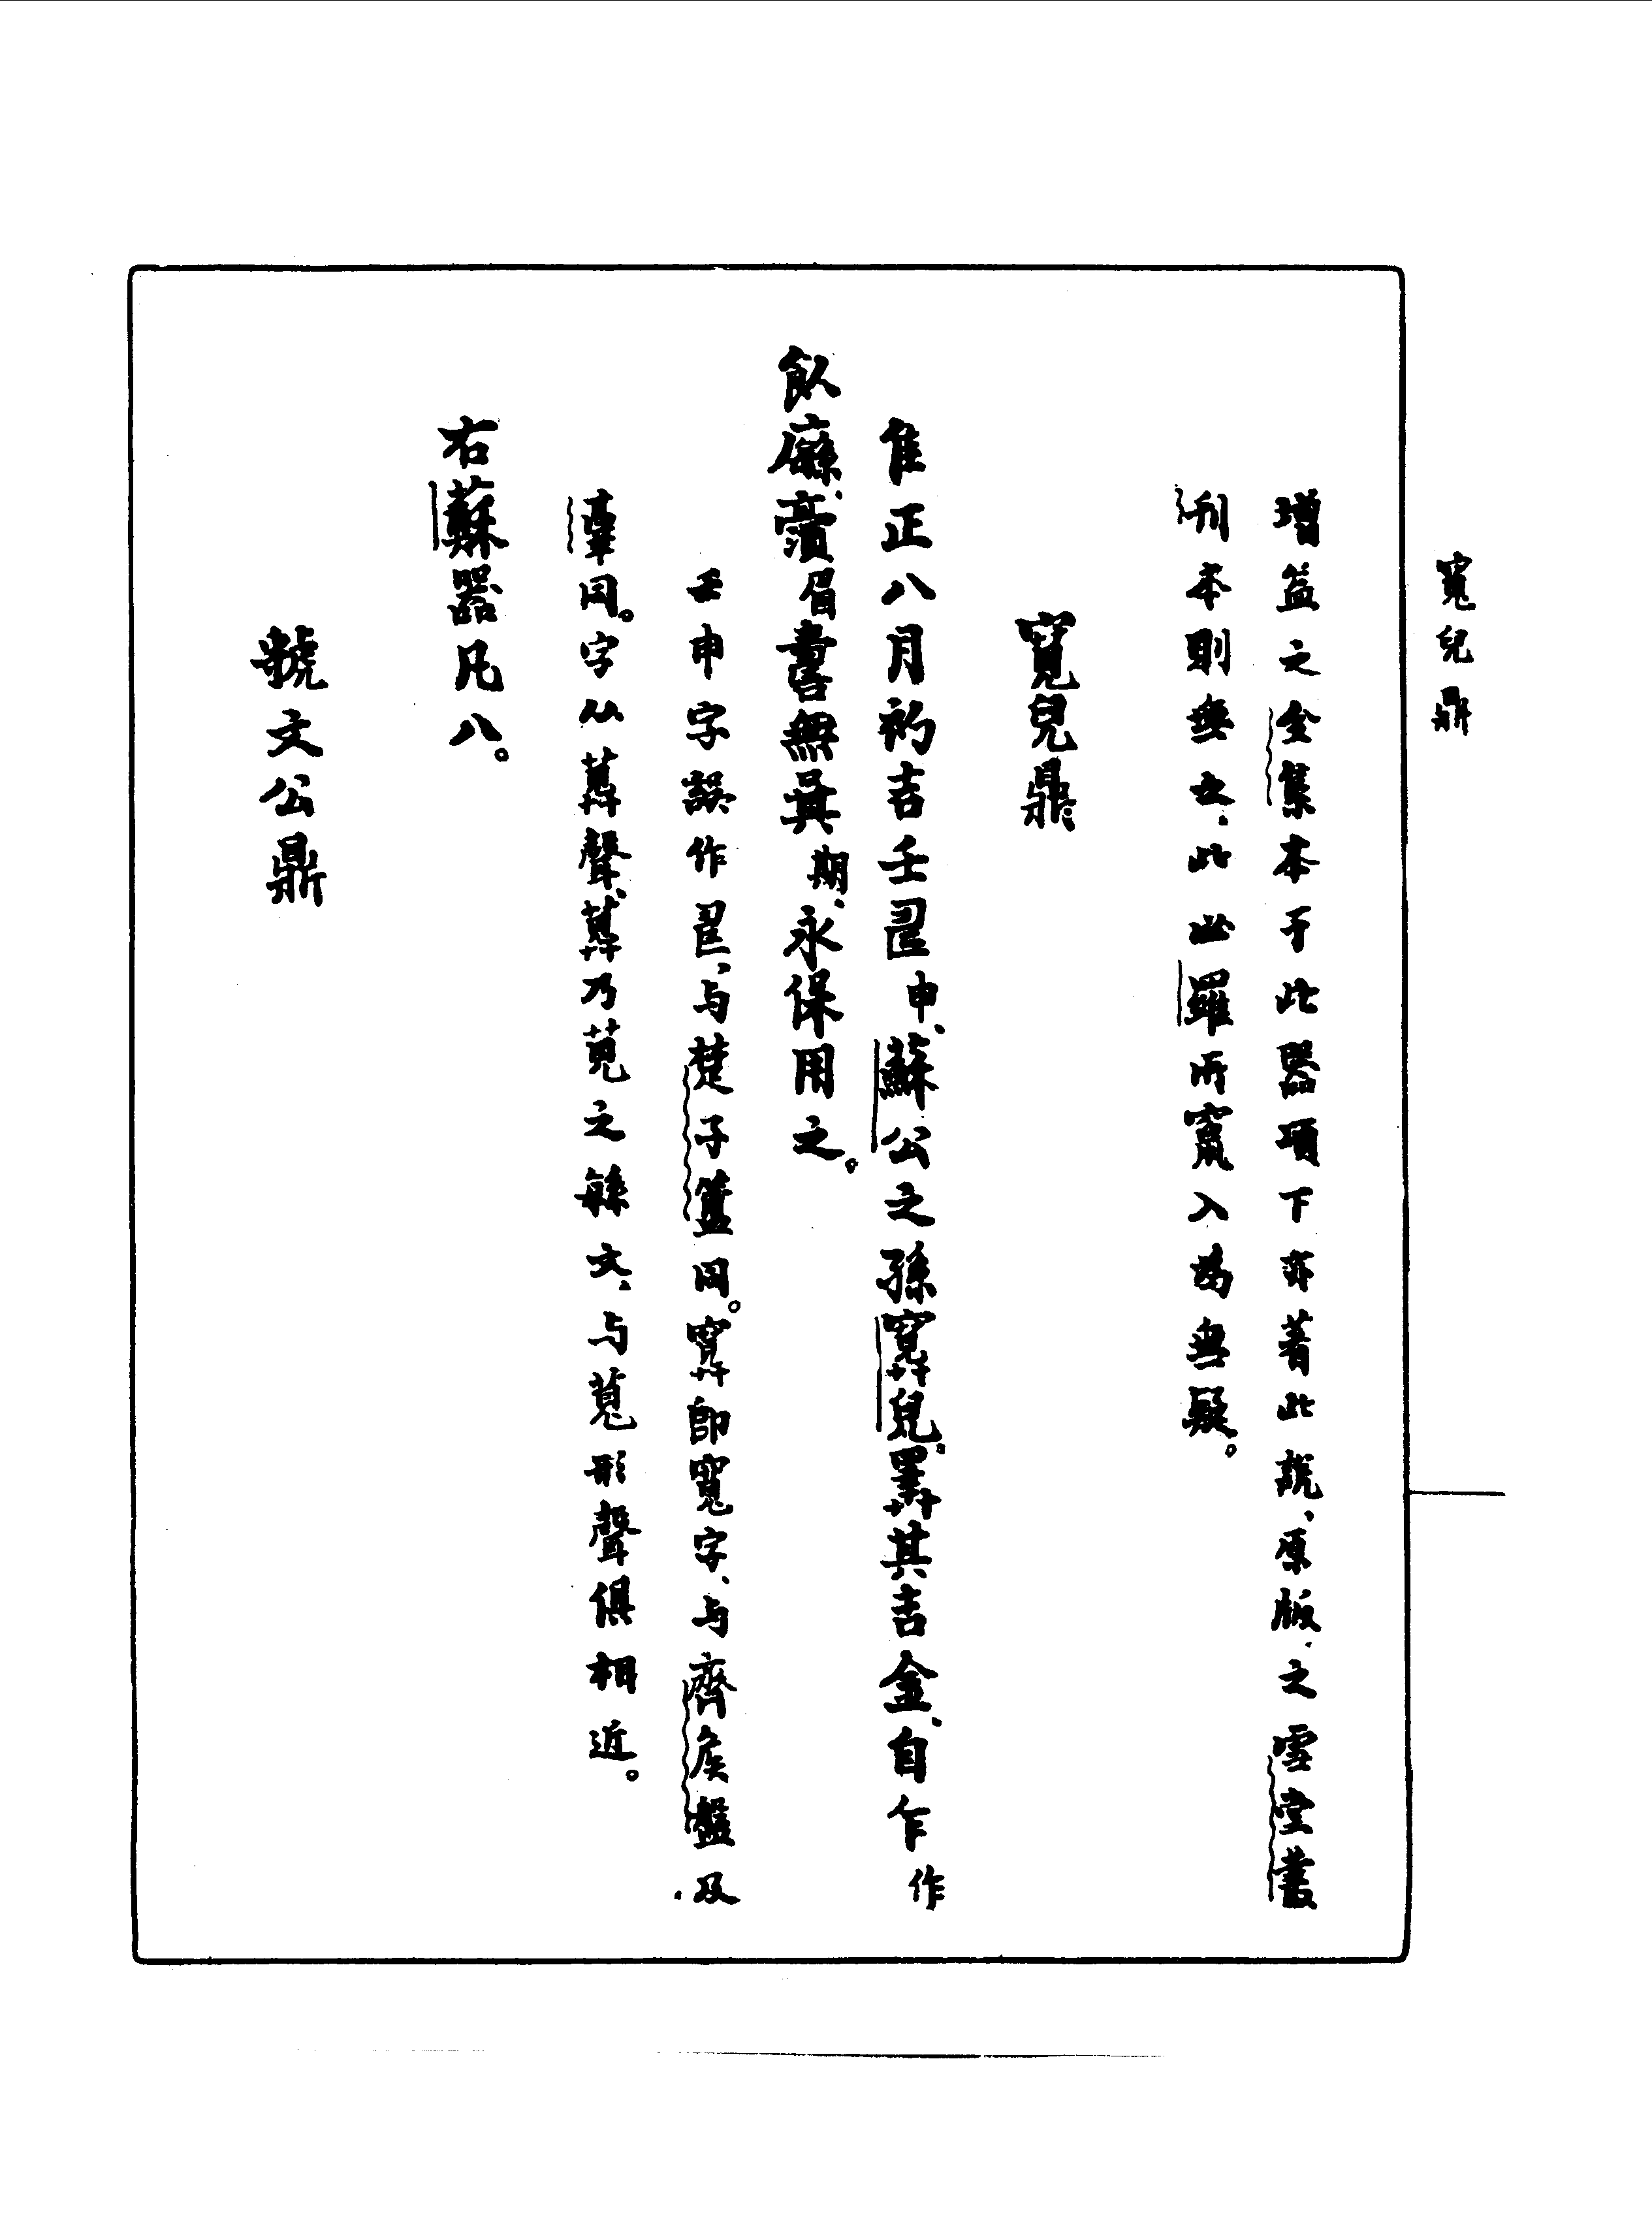 寬兒鼎
增益之全集本于此器項下亦著此說、原版之雪堂叢
刊本則無之、此必羅所竄入為無疑。
寬兒鼎
隹正八月初吉壬申、蘇公之孫寬兒、擇其吉金、自乍作
飤、眉壽無期、永保用之。
壬申字誤作、与楚子簠同。即寬字、与齊侯盤及
同。字从聲、乃萈之緐文、与莧形聲俱相近。
右蘇器凡八。
虢文公鼎